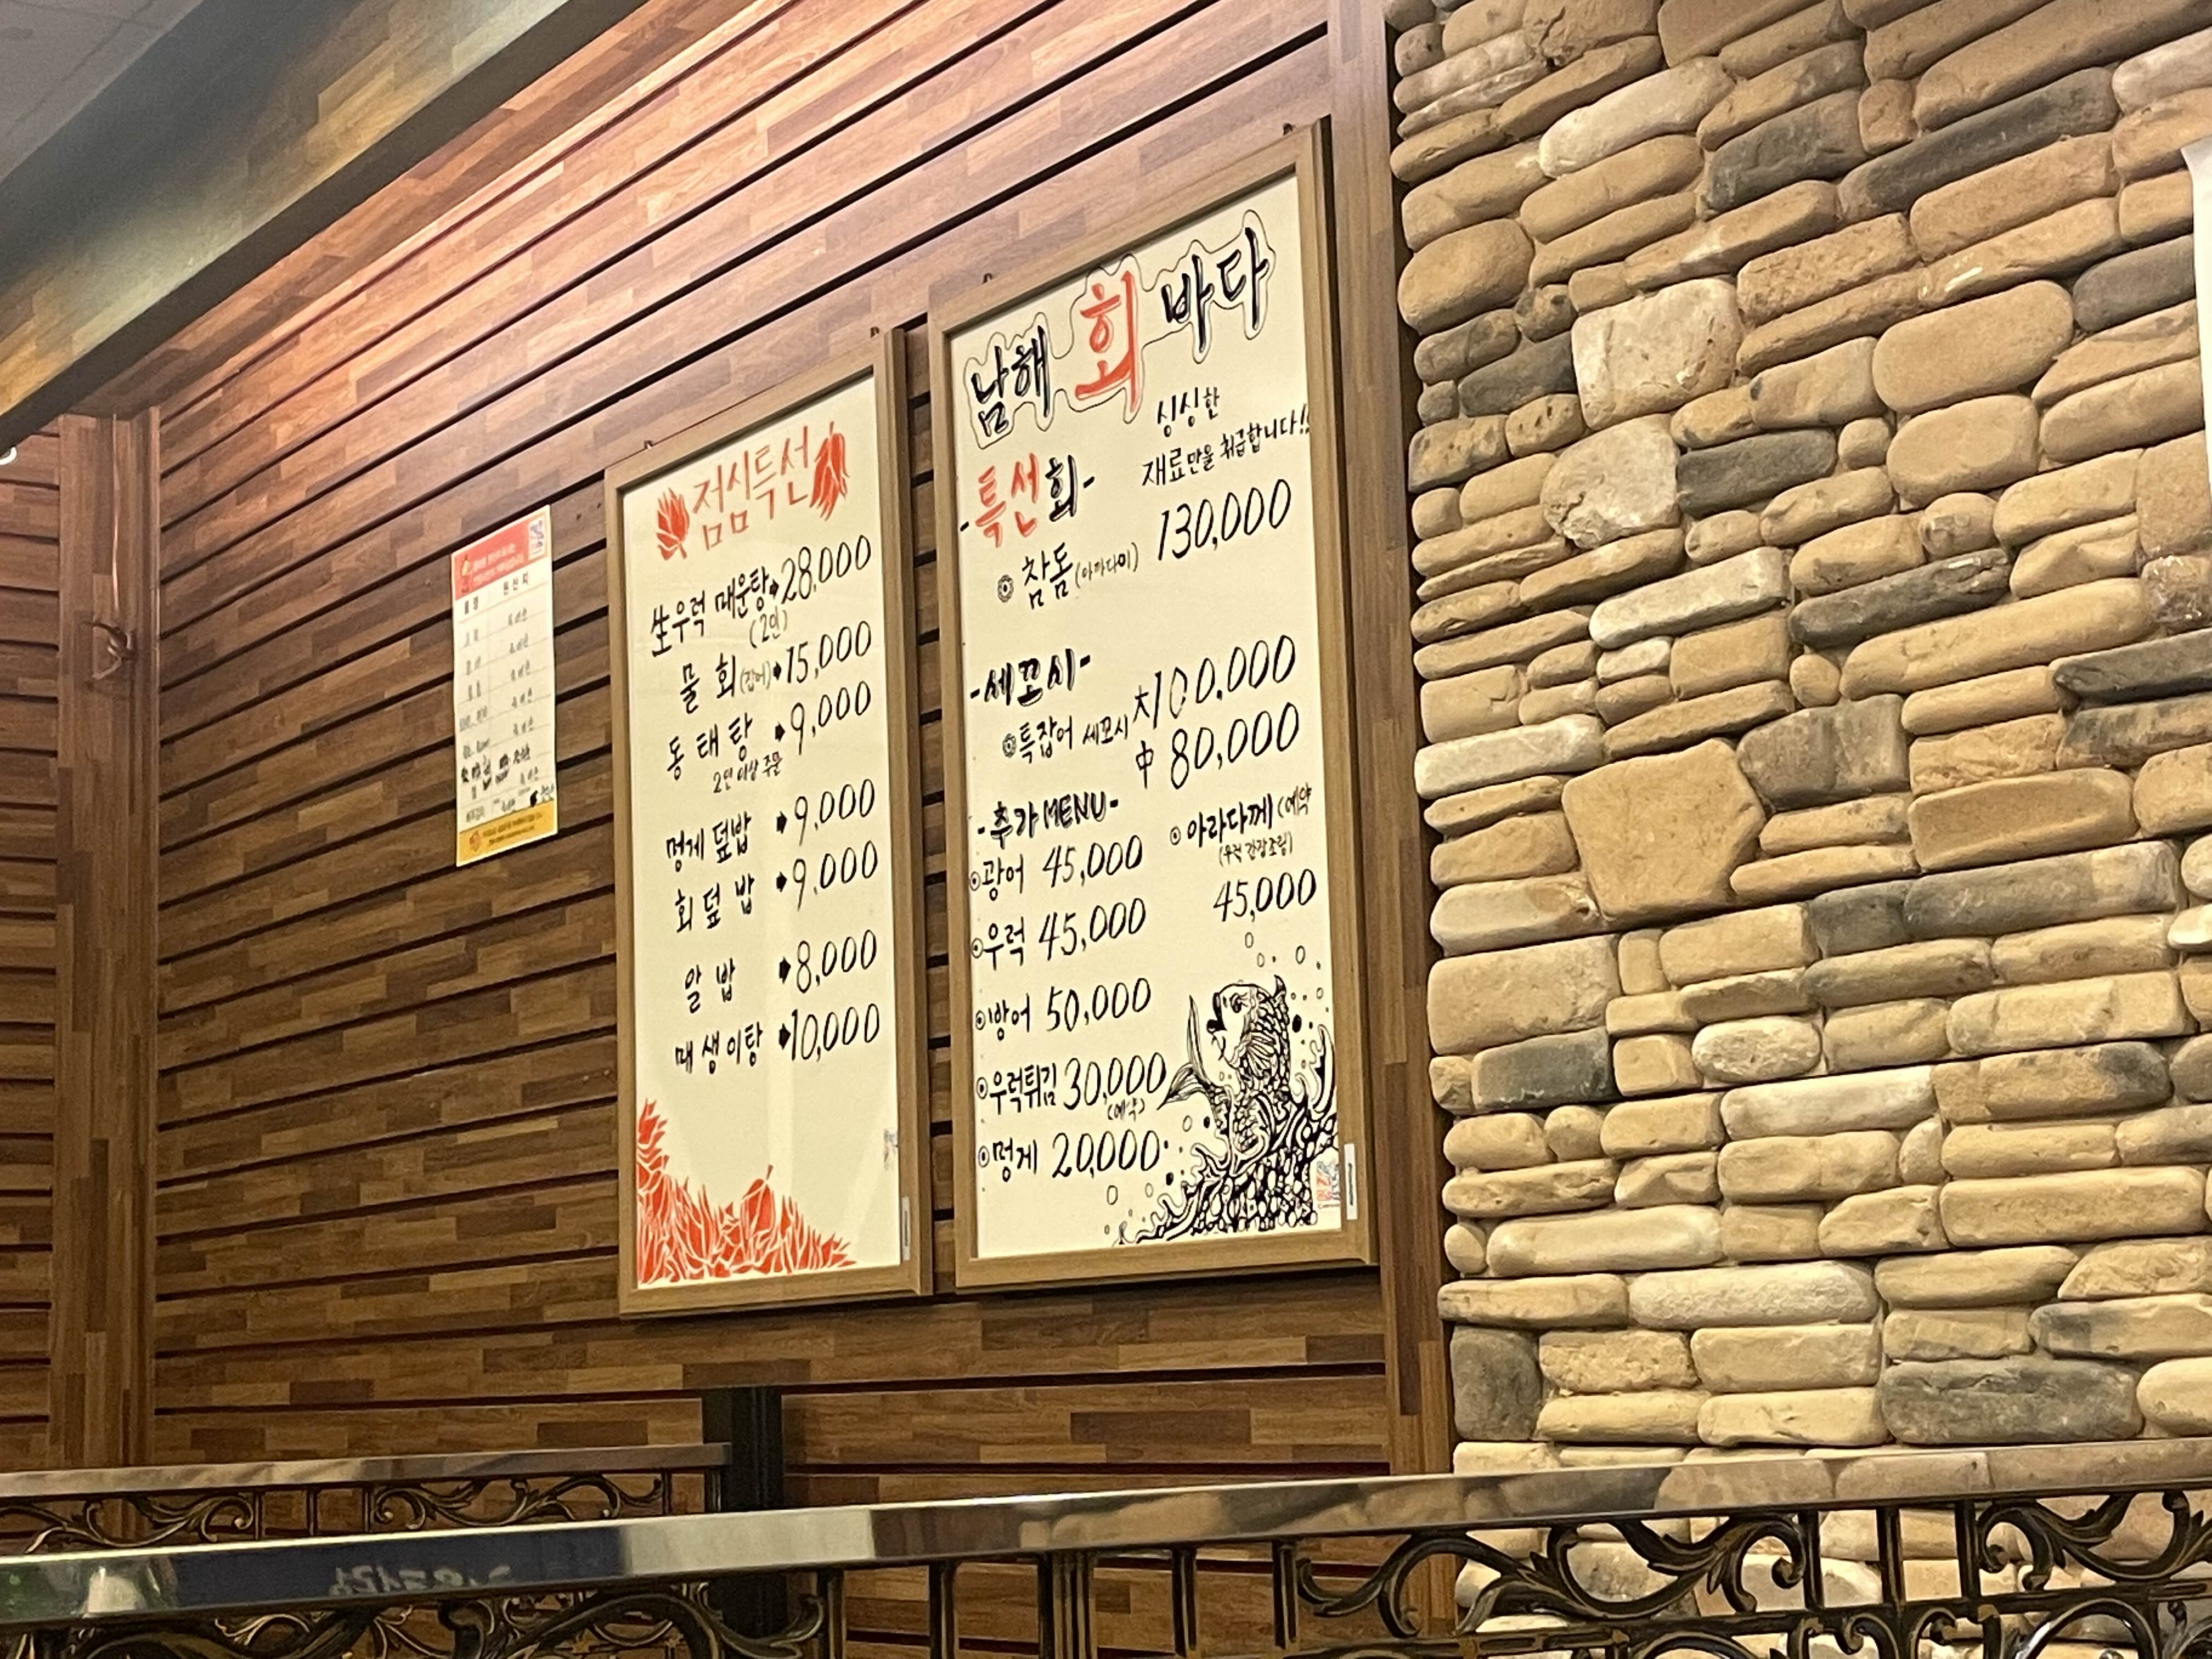 점심특선
生우럭 매운탕➡28,000
(2인)
물 회(잡어)➡15,000
동 태 탕 ➡9,000
2인 이상 주문
멍게 덮밥 ➡9,000
회 덮 밥 ➡9,000
알 밥 ➡8,000
매생이탕 ➡10,000
남해 회 바다
싱싱한
재료만을 취급합니다!!
-특선회-
참돔(아까다이) 130,000
-세꼬시-
특잡어 세꼬시 大100,000
中 80,000
-추가MENU-
광어 45,000
우럭 45,000
방어 50,000
우럭튀김 30,000
(예약)
멍게 20,000
아라다께(예약
(우럭 간장조림)
45,000